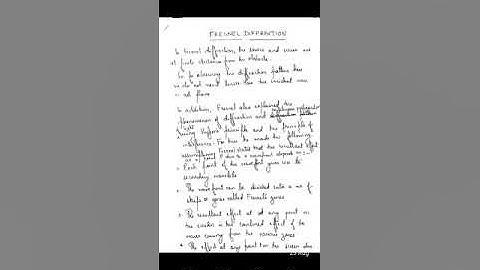 FRESNEL DIFFRACTION
In fresnel diffraction, the source and screen are
at finite distance from the obstacle.
In observing the diffraction pattern
we do not need lenses the incident wave
is not plane.
In addition, Fresnel also explained the
phenomenon of diffraction and
using Huygens principle and the principle of
interference. For this he made the following
assumptions Fresnel stated that the resultant effect
at a point P due to a wavefront depends on :-
Each point of the wavefront gives rise to
secondary wavelets
• The wavefront can be divided into a no of
strips or zones called Fresnel's zones
• The resultant effect at any point on
the screen is the combined effect of the
waves coming from the various zones
• The effect at any point on the screen also